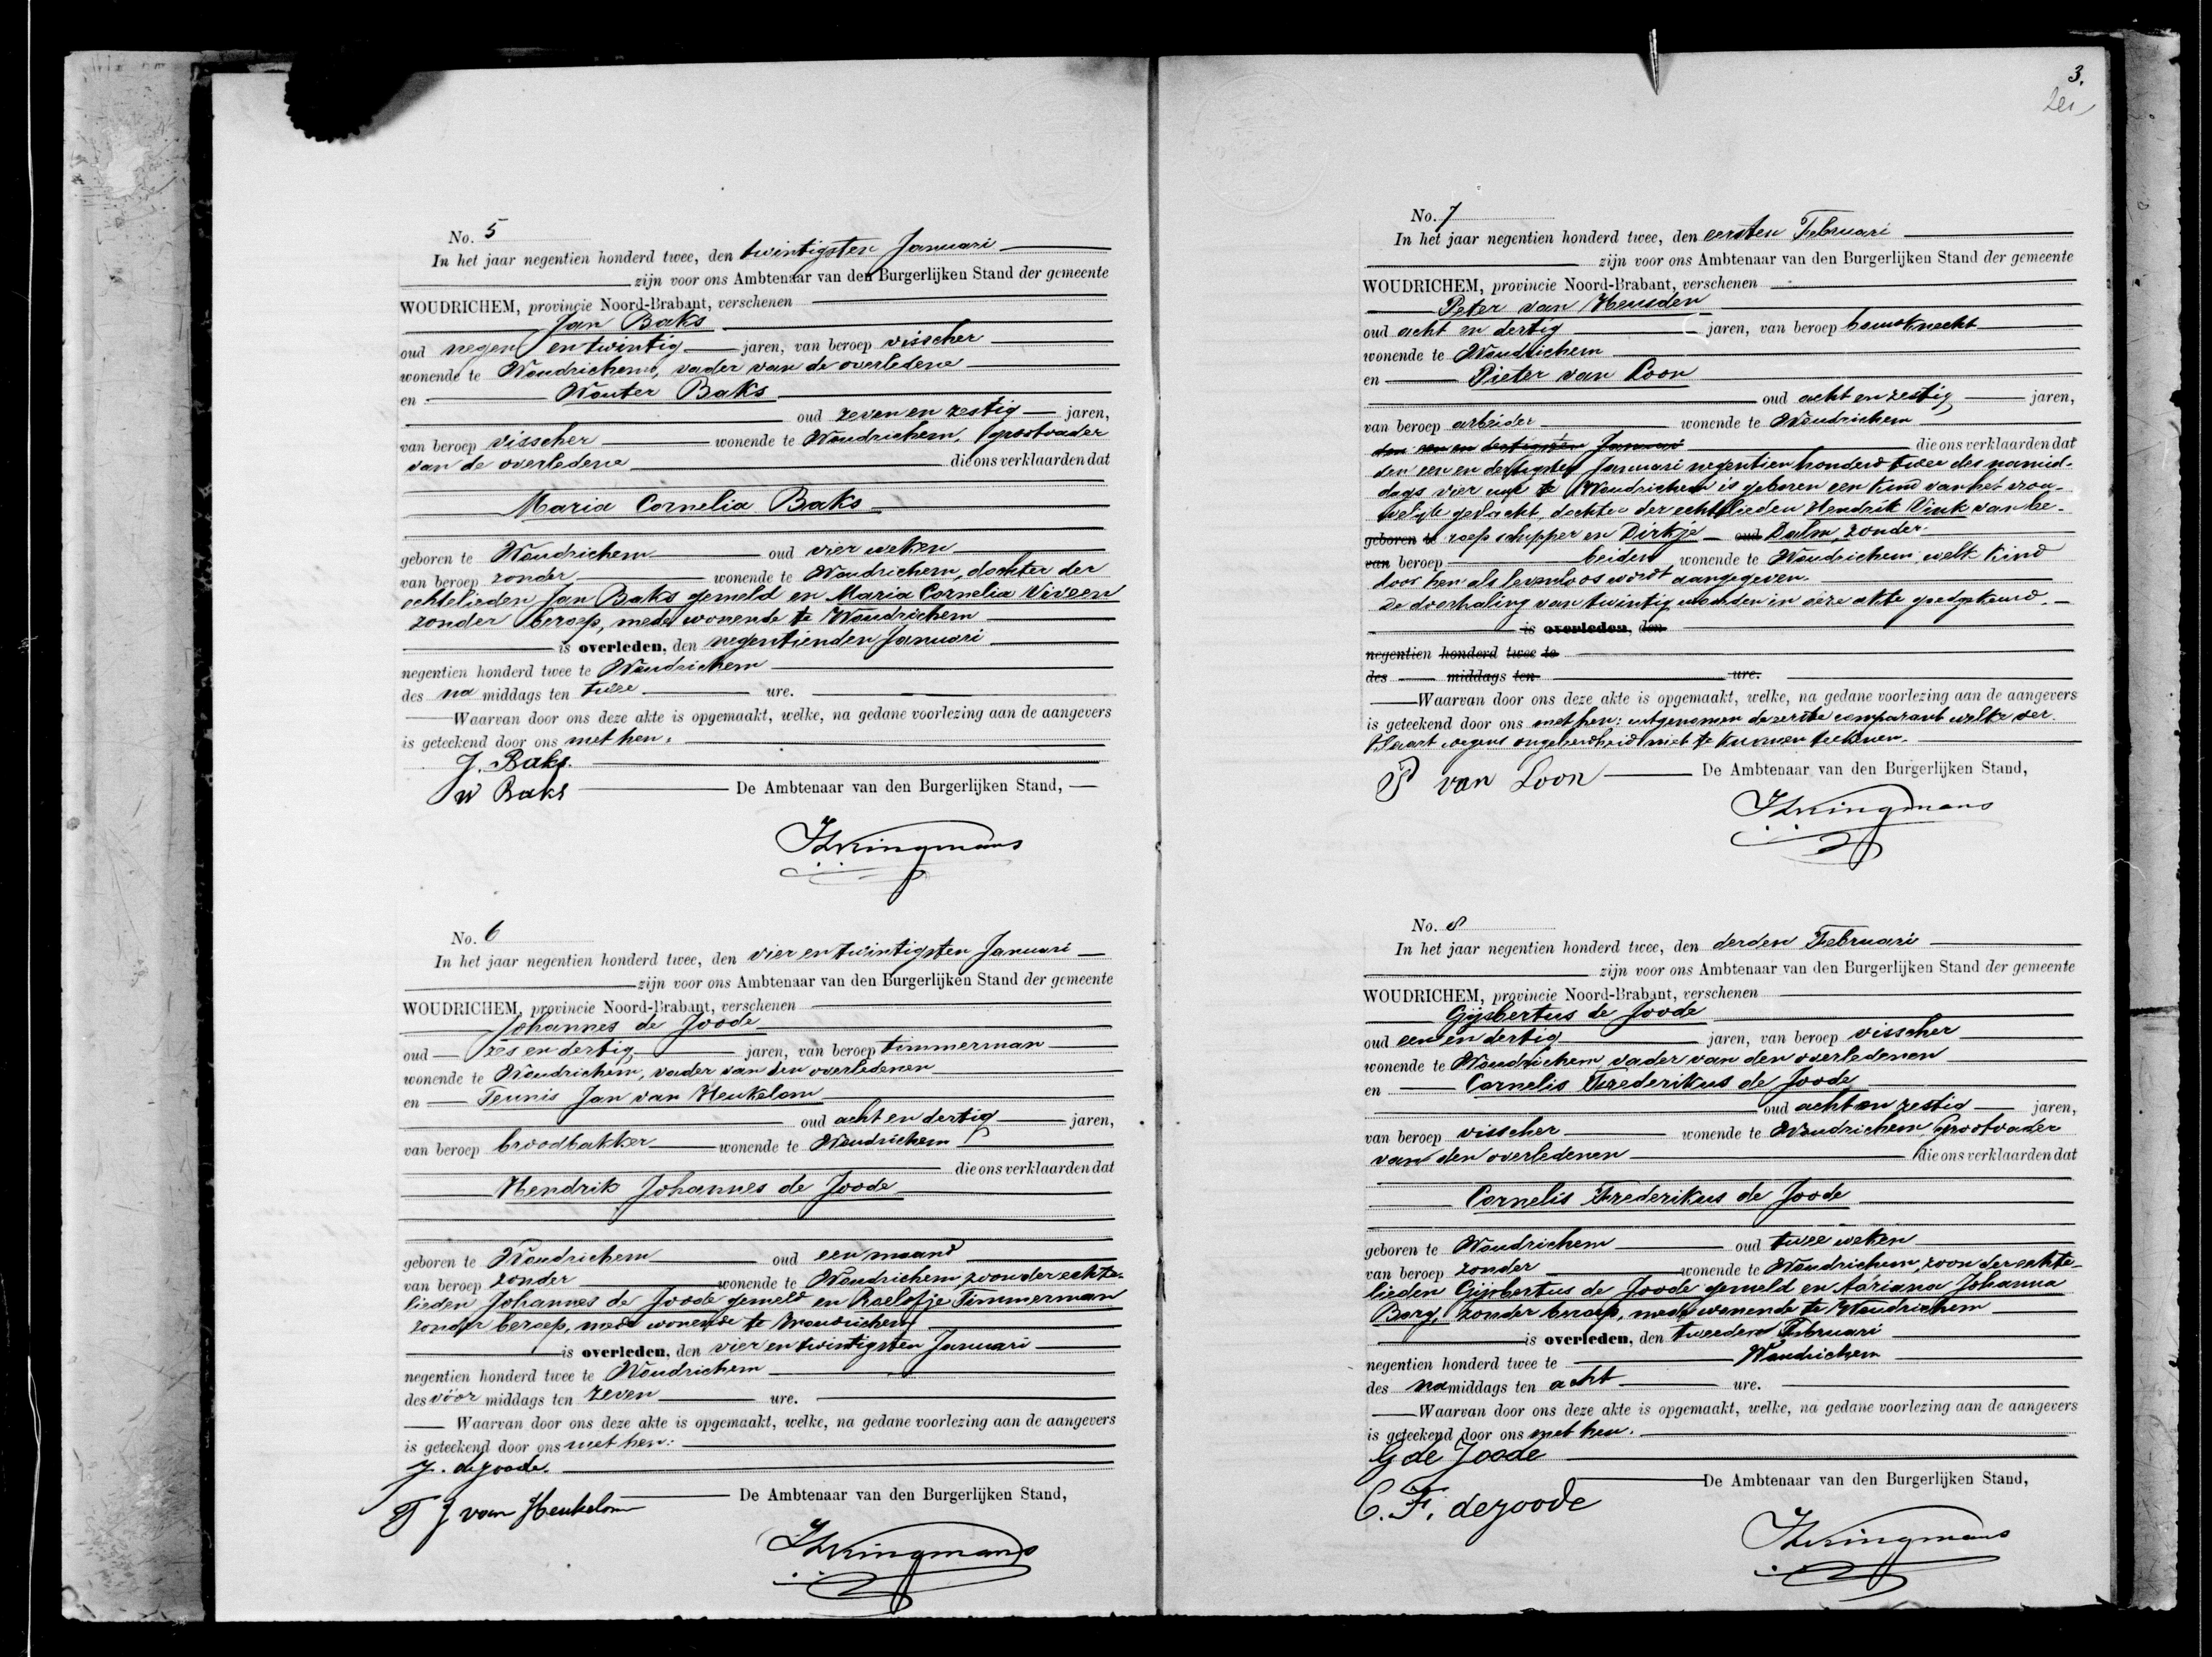 No. 5
In het jaar negentien honderd twee, den twintigsten Januari
zijn voor ons Ambtenaar van den Burgerlijken Stand der gemeente
WOUDRICHEM, provincie Noord-Brabant, verschenen
Jan Baks
oud negen en twintig jaren, van beroep visscher
wonende te Woudrichem, vader van de overledene
en Wouter Baks
oud zeven en zestig jaren,
van beroep visscher wonende te Woudrichem, grootvader
van de overledene die ons verklaarden dat
Maria Cornelia Baks
geboren te Woudrichem oud vier weken
van beroep zonder wonende te Woudrichem, dochter der
echtelieden Jan Baks gemeld en Maria Cornelia Viveen
zonder beroep, mede wonende te Woudrichem
is overleden, den negentienden Januari
negentien honderd twee te Woudrichem
des na middags ten twee ure.
Waarvan door ons deze akte is opgemaakt, welke, na gedane voorlezing aan de aangevers
is geteekend door ons met hen.
J. Baks.
W Baks De Ambtenaar van den Burgerlijken Stand,
No. 6
In het jaar negentien honderd twee, den vier en twintigsten Januari
zijn voor ons Ambtenaar van den Burgerlijken Stand der gemeente
WOUDRICHEM, provincie Noord-Brabant, verschenen
Johannes de Joode
oud zes en dertig jaren, van beroep timmerman
wonende te Woudrichem, vader van den overledenen
en Teunis Jan van Heukelom
oud acht en dertig jaren,
van beroep broodbakker wonende te Woudrichem
die ons verklaarden dat
Hendrik Johannes de Joode
geboren te Woudrichem oud een maand
van beroep zonder wonende te Woudrichem, zoon der echte-
lieden Johannes de Joode gemeld en Roelofje Timmerman
zonder beroep, mede wonende te Woudrichem
is overleden, den vier en twintigsten Januari
negentien honderd twee te Woudrichem
des vóór middags ten zeven ure.
Waarvan door ons deze akte is opgemaakt, welke, na gedane voorlezing aan de aangevers
is geteekend door ons met hen.
J. de Joode.
T J van Heukelom De Ambtenaar van den Burgerlijken Stand,
3.
No. 7
In het jaar negentien honderd twee, den eersten Februari
zijn voor ons Ambtenaar van den Burgerlijken Stand der gemeente
WOUDRICHEM, provincie Noord-Brabant, verschenen
Peter van Heusden
oud acht en dertig jaren, van beroep bouwknecht
wonende te Woudrichem
en Pieter van Loon
oud acht en zestig jaren,
van beroep arbeider wonende te Woudrichem
den een en dertigsten Januari die ons verklaarden dat
den een en dertigsten Januari negentien honderd twee des namid-
dags vier uur te Woudrichem is geboren een kind van het vrou-
welijk geslacht, dochter der echtelieden Hendrik Vink van be-
geboren te roep schipper en Dirkje oud Dalm, zonder
van beroep beiden wonende te Woudrichem, welk kind
door hen als levenloos wordt aangegeven.
De doorhaling van twintig woorden in deze akte goedgekeurd.
is overleden, den
negentien honderd twee te
des middags ten ure.
Waarvan door ons deze akte is opgemaakt, welke, na gedane voorlezing aan de aangevers
is geteekend door ons met hen: uitgenomen de eerste comparant welke ver-
klaart wegens ongeleerdheid niet te kunnen teekenen.
P van Loon De Ambtenaar van den Burgerlijken Stand,
No. 8
In het jaar negentien honderd twee, den derden Februari
zijn voor ons Ambtenaar van den Burgerlijken Stand der gemeente
WOUDRICHEM, provincie Noord-Brabant, verschenen
Gijsbertus de Joode
oud een en dertig jaren, van beroep visscher
wonende te Woudrichem, vader van den overledenen
en Cornelis Frederikus de Joode
oud acht en zestig jaren,
van beroep visscher wonende te Woudrichem, grootvader
van den overledenen die ons verklaarden dat
Cornelis Frederikus de Joode
geboren te Woudrichem oud twee weken
van beroep zonder wonende te Woudrichem, zoon der echte-
lieden Gijsbertus de Joode gemeld en Adriana Johanna
Borg, zonder beroep, mede wonende te Woudrichem
is overleden, den tweeden Februari
negentien honderd twee te Woudrichem
des na middags ten acht ure.
Waarvan door ons deze akte is opgemaakt, welke, na gedane voorlezing aan de aangevers
is geteekend door ons met hen.
G de Joode
De Ambtenaar van den Burgerlijken Stand,
C. F. de Joode